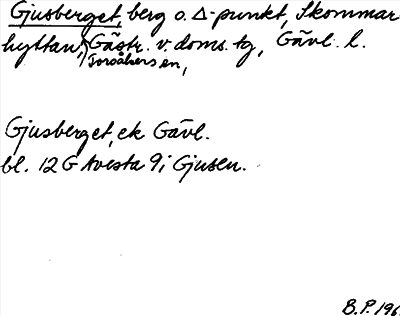 Gjusberget, berg o. Δ-punkt, Skommar
hyttan, Gästr. v. doms. tg, Gävl. l.
Torsåkers en,
Gjusberget, ek Gävl.
bl. 12 G Avesta 9 i Gjusen.
B.P. 196